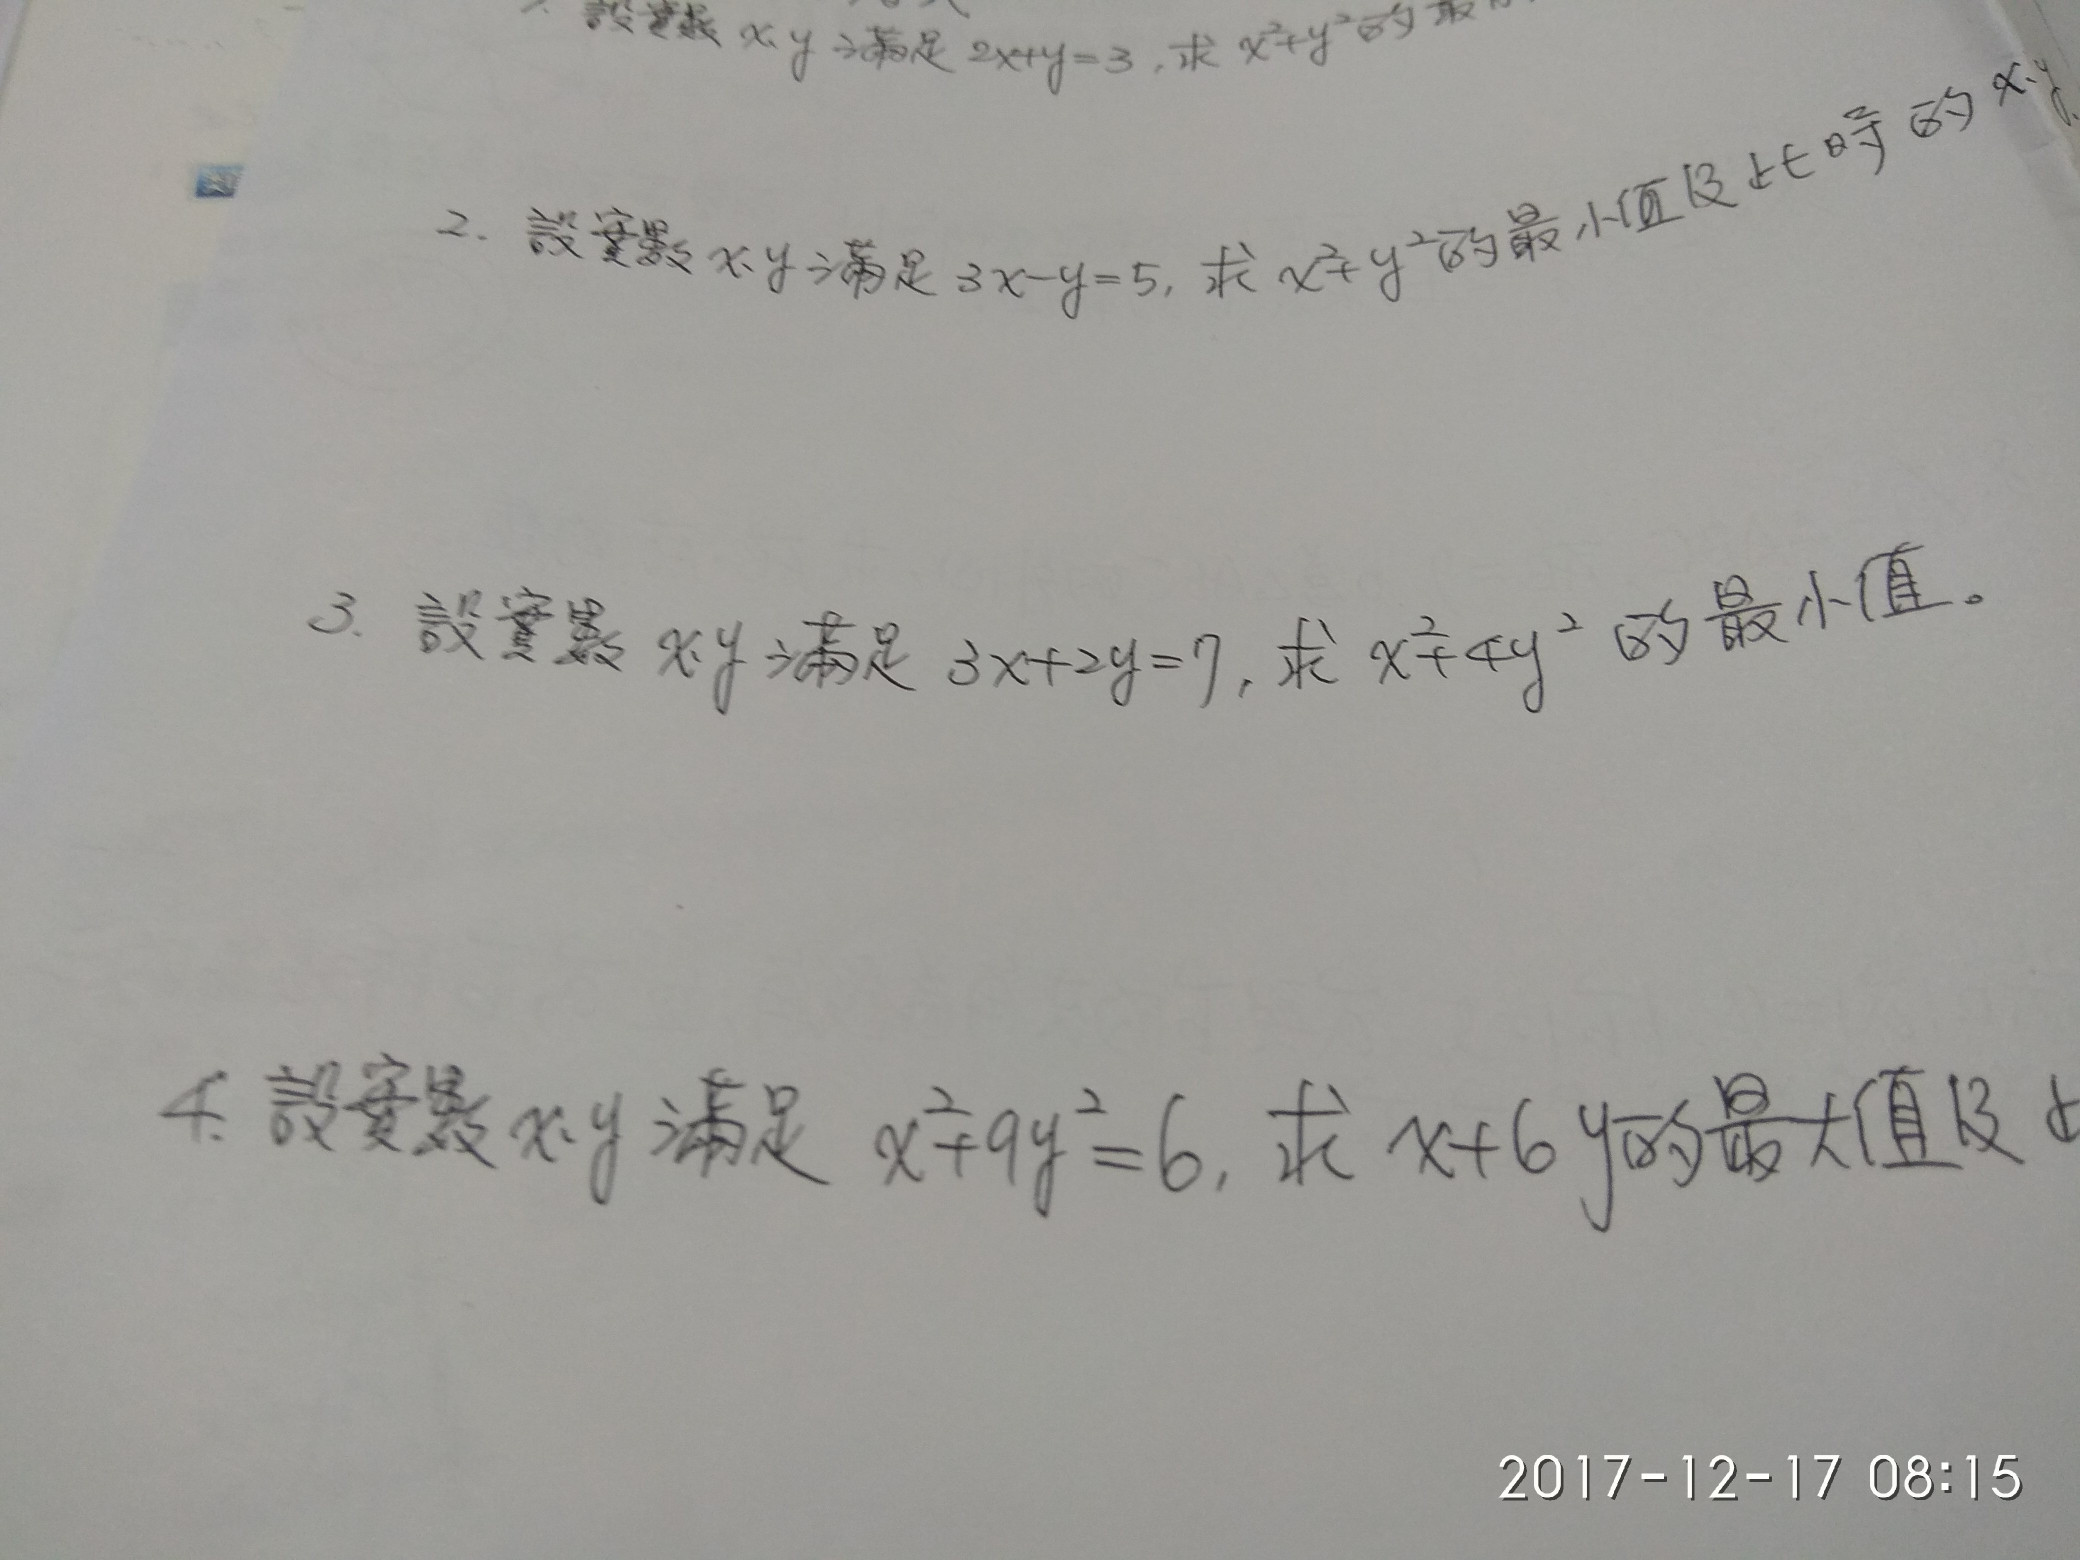 設實數 x、y 滿足 2x+y=3，求 x²+y² 的最
2. 設實數 x、y 滿足 3x-y=5，求 x²+y² 的最小值及此時的 x、y
3. 設實數 x、y 滿足 3x+2y=7，求 x²+4y² 的最小值。
4. 設實數 x、y 滿足 x²+9y²=6，求 x+6y 的最大值及
2017-12-17 08:15